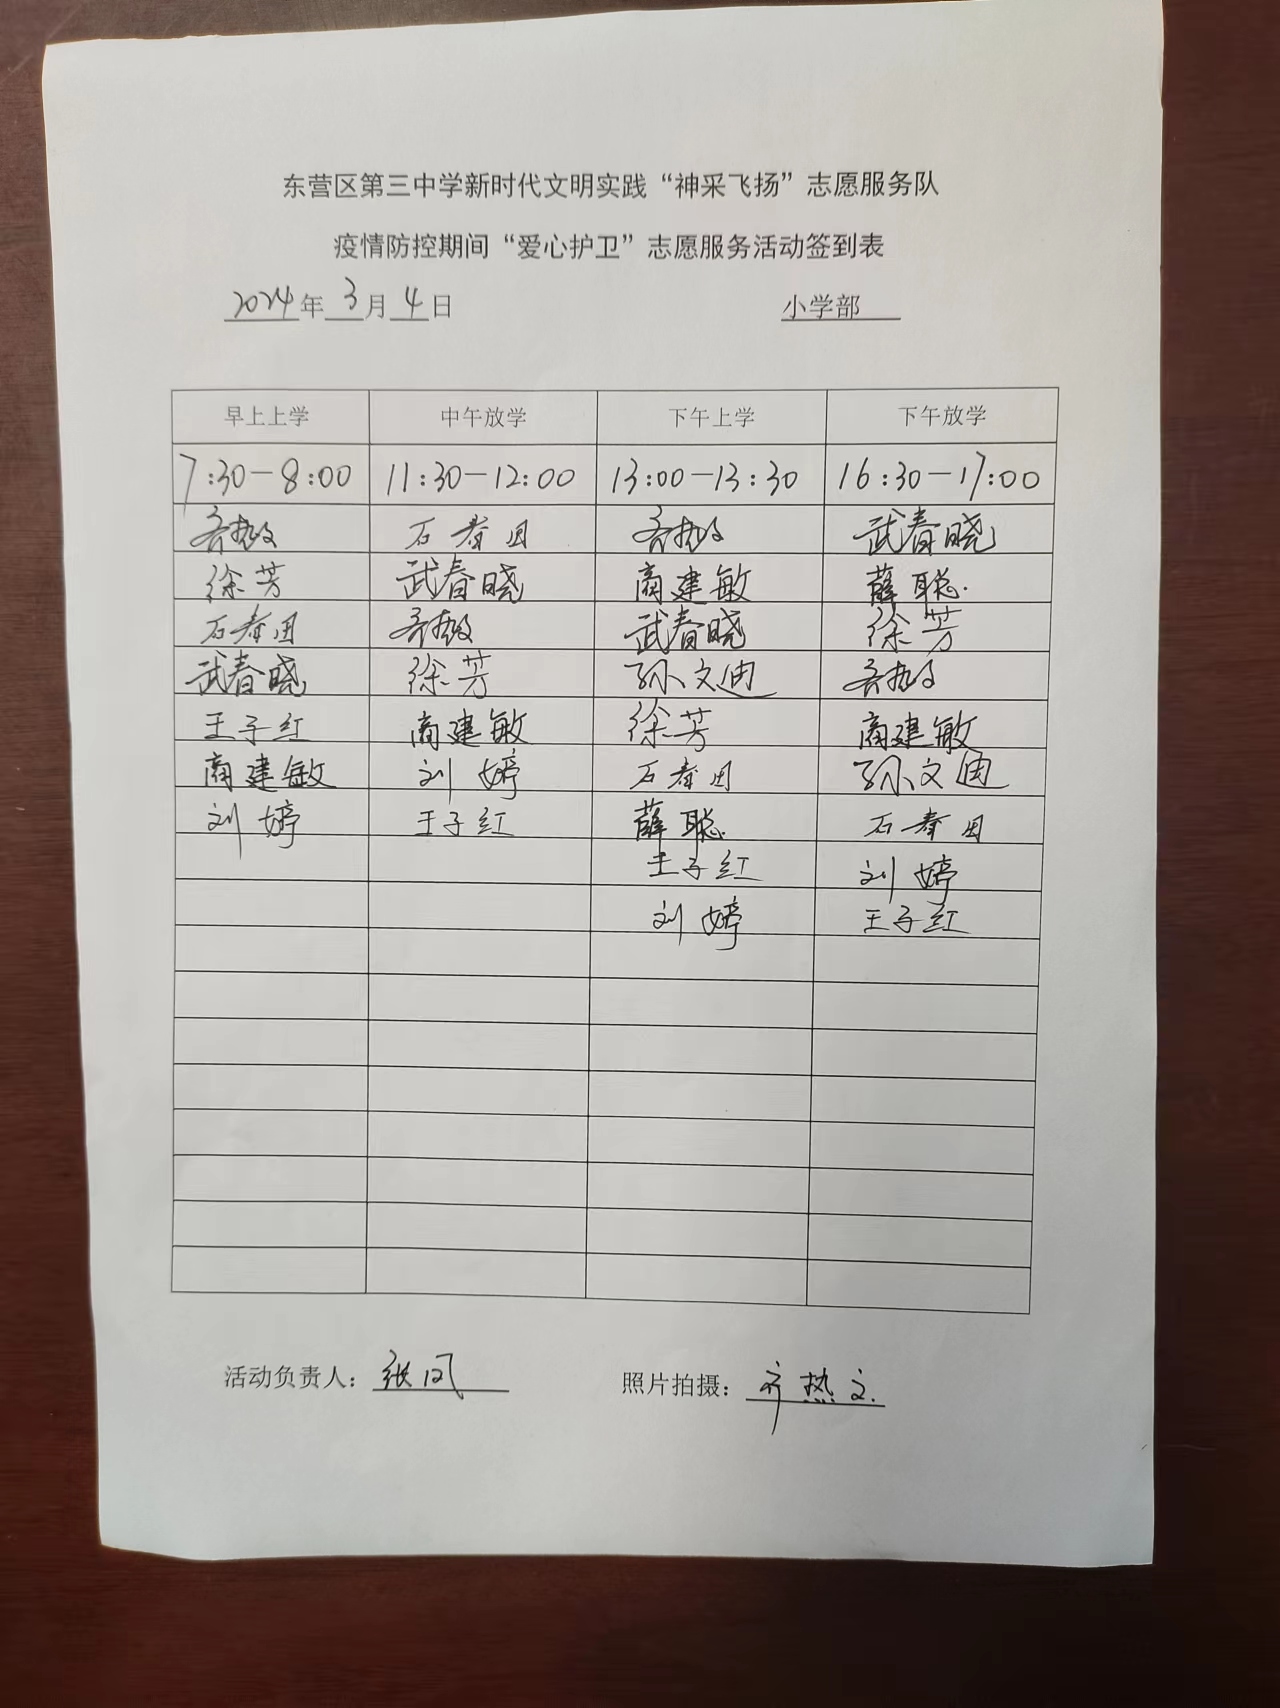 东营区第三中学新时代文明实践“神采飞扬”志愿服务队
疫情防控期间“爱心护卫”志愿服务活动签到表
2024年3月4日 小学部
早上上学 中午放学 下午上学 下午放学
7:30-8:00 11:30-12:00 13:00-13:30 16:30-17:00
齐热文 石春田 齐热文 武春晓
徐芳 武春晓 商建敏 薛聪.
石春田 齐热文 武春晓 徐芳
武春晓 徐芳 孙文迪 齐热文
王子红 商建敏 徐芳 商建敏
商建敏 刘婷 石春田 孙文迪
刘婷 王子红 薛聪. 石春田
王子红 刘婷
刘婷 王子红
活动负责人：张凤 照片拍摄：齐热文.